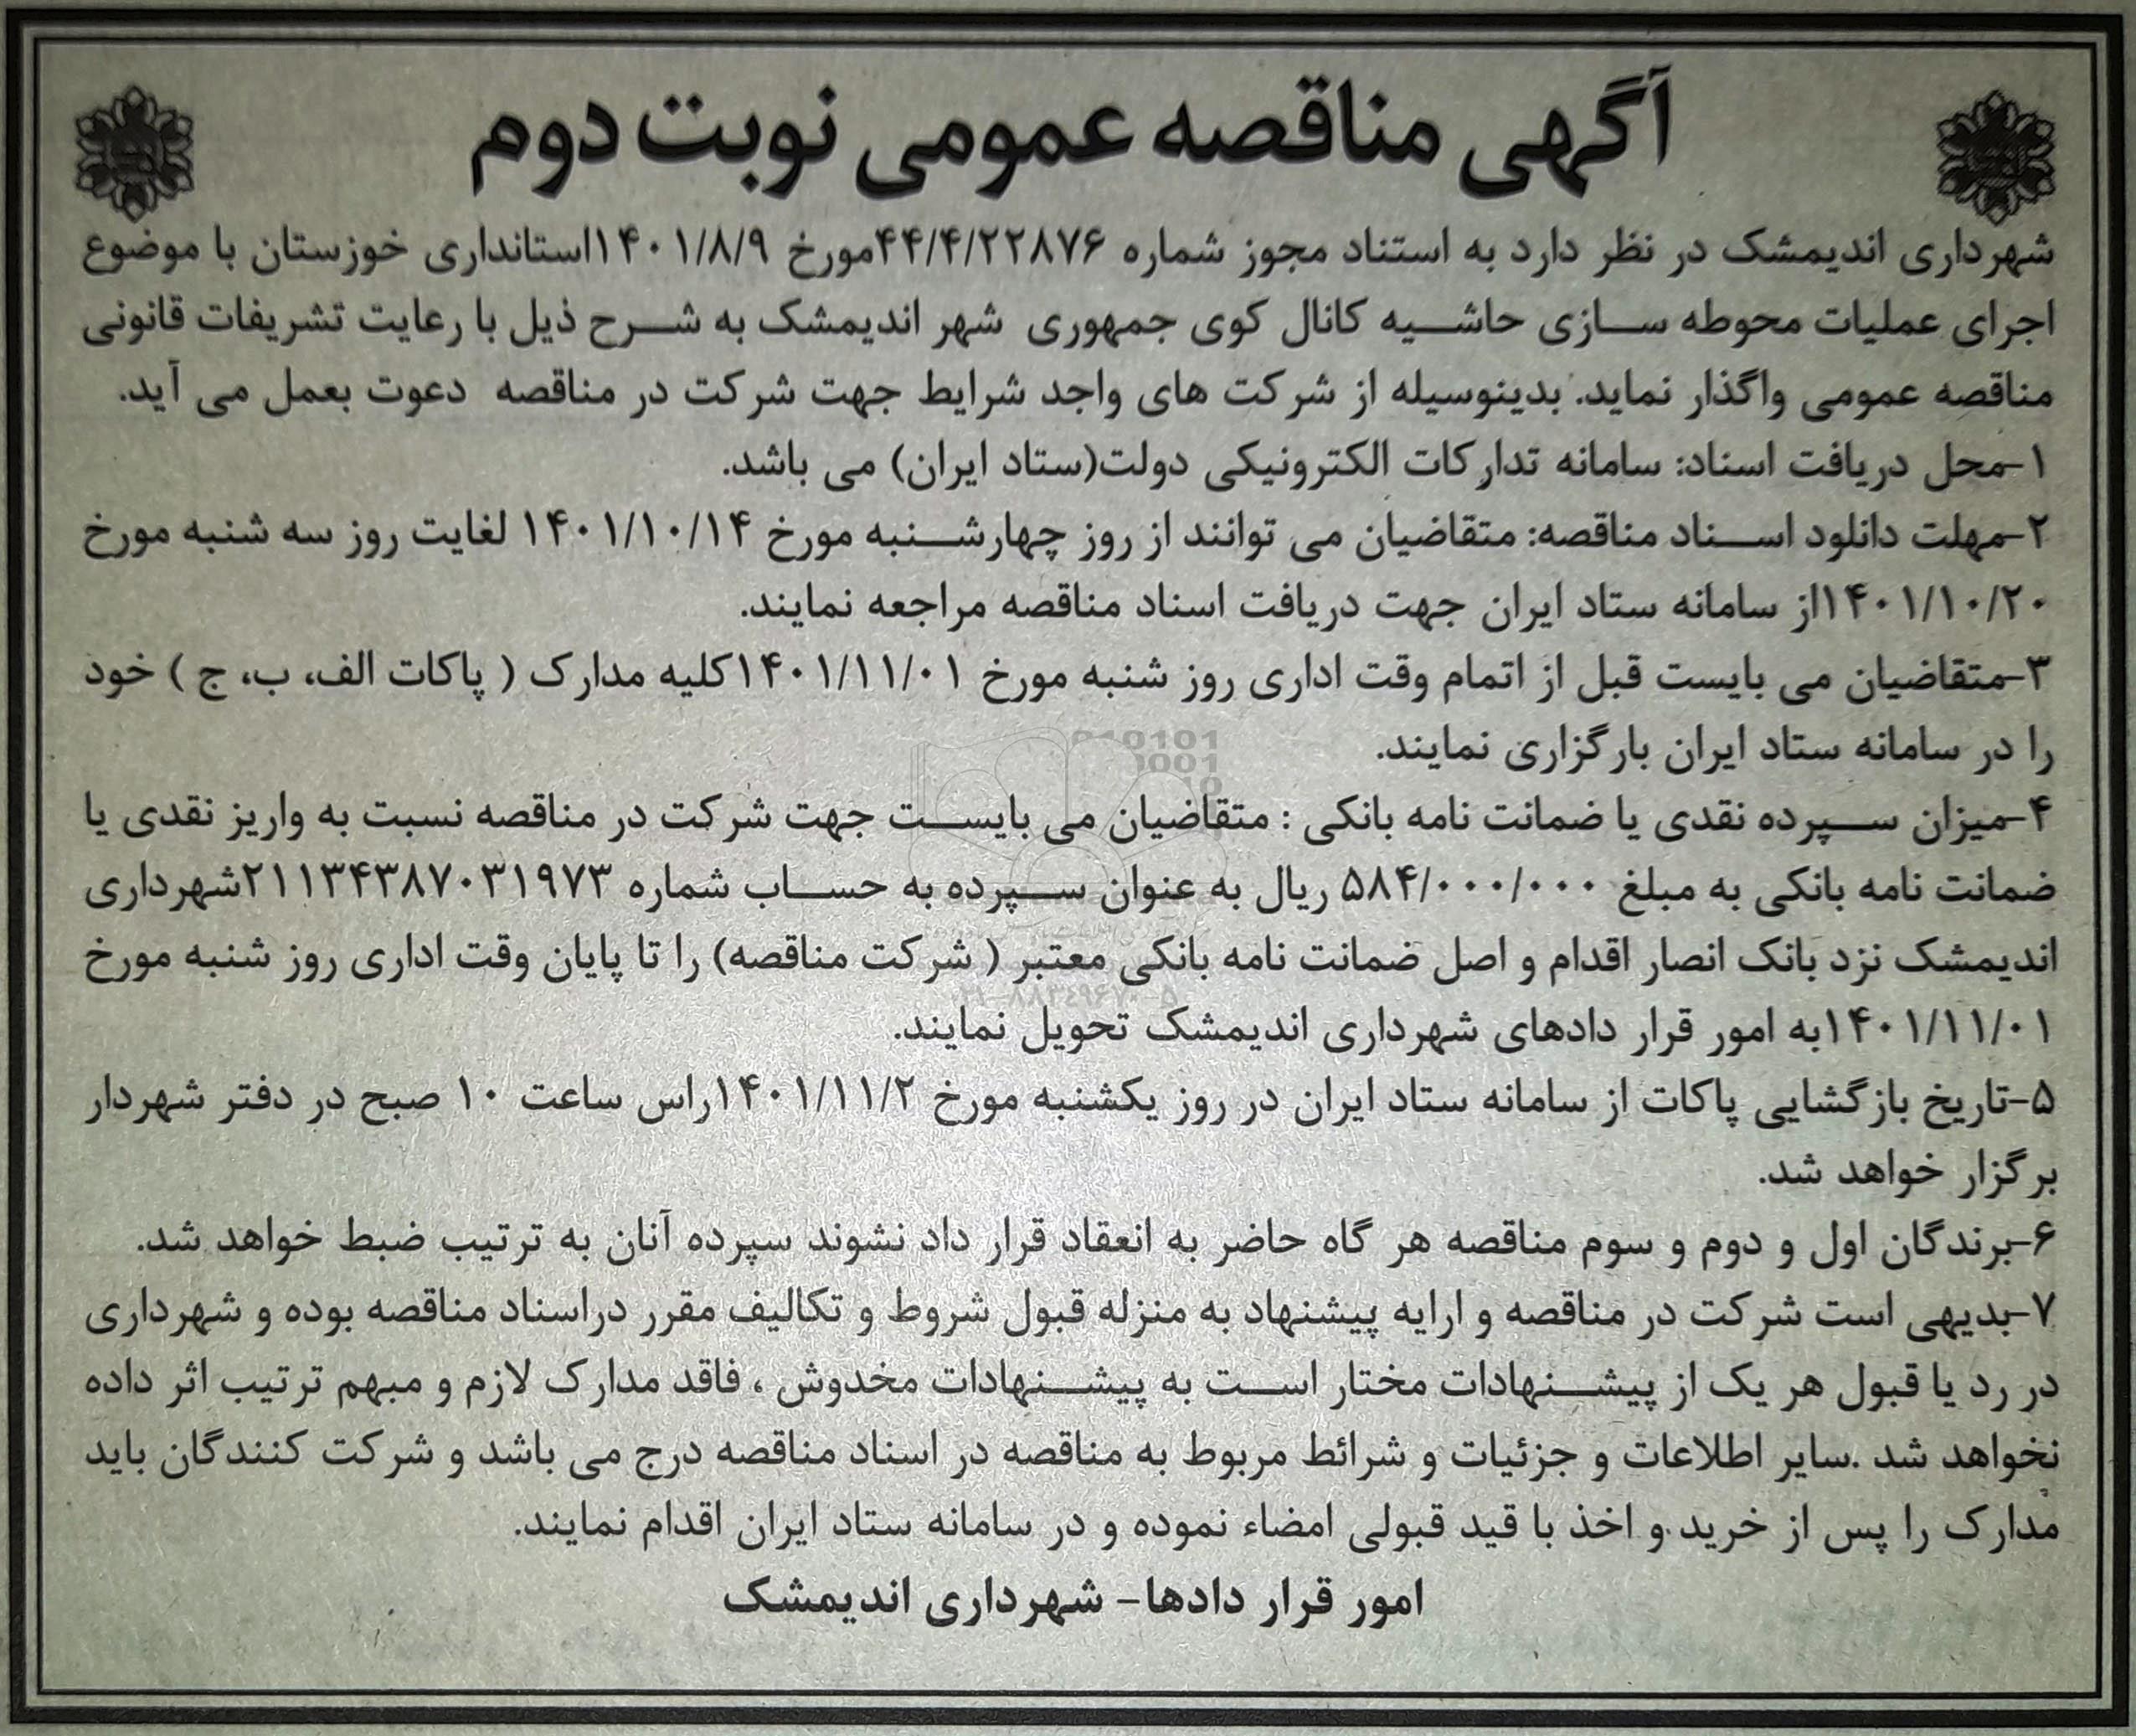 آگهی مناقصه عمومی نوبت دوم
شهرداری اندیمشک در نظر دارد به استناد مجوز شماره ۴۴/۴/۲۲۸۷۶مورخ ۱۴۰۱/۸/۹استانداری خوزستان با موضوع
اجرای عملیات محوطه سازی حاشیه کانال کوی جمهوری شهر اندیمشک به شرح ذیل با رعایت تشریفات قانونی
مناقصه عمومی واگذار نماید. بدینوسیله از شرکت های واجد شرایط جهت شرکت در مناقصه دعوت بعمل می آید.
۱-محل دریافت اسناد: سامانه تدارکات الکترونیکی دولت(ستاد ایران) می باشد.
۲-مهلت دانلود اسناد مناقصه: متقاضیان می توانند از روز چهارشنبه مورخ ۱۴۰۱/۱۰/۱۴ لغایت روز سه شنبه مورخ
۱۴۰۱/۱۰/۲۰از سامانه ستاد ایران جهت دریافت اسناد مناقصه مراجعه نمایند.
۳-متقاضیان می بایست قبل از اتمام وقت اداری روز شنبه مورخ ۱۴۰۱/۱۱/۰۱کلیه مدارک ( پاکات الف، ب، ج ) خود
را در سامانه ستاد ایران بارگزاری نمایند.
۴-میزان سپرده نقدی یا ضمانت نامه بانکی : متقاضیان می بایست جهت شرکت در مناقصه نسبت به واریز نقدی یا
ضمانت نامه بانکی به مبلغ ۵۸۴/۰۰۰/۰۰۰ ریال به عنوان سپرده به حساب شماره ۲۱۱۳۴۳۸۷۰۳۱۹۷۳شهرداری
اندیمشک نزد بانک انصار اقدام و اصل ضمانت نامه بانکی معتبر ( شرکت مناقصه) را تا پایان وقت اداری روز شنبه مورخ
۱۴۰۱/۱۱/۰۱به امور قرار دادهای شهرداری اندیمشک تحویل نمایند.
۵-تاریخ بازگشایی پاکات از سامانه ستاد ایران در روز یکشنبه مورخ ۱۴۰۱/۱۱/۲راس ساعت ۱۰ صبح در دفتر شهردار
برگزار خواهد شد.
۶-برندگان اول و دوم و سوم مناقصه هر گاه حاضر به انعقاد قرار داد نشوند سپرده آنان به ترتیب ضبط خواهد شد.
۷-بدیهی است شرکت در مناقصه و ارایه پیشنهاد به منزله قبول شروط و تکالیف مقرر دراسناد مناقصه بوده و شهرداری
در رد یا قبول هر یک از پیشنهادات مختار است به پیشنهادات مخدوش ، فاقد مدارک لازم و مبهم ترتیب اثر داده
نخواهد شد .سایر اطلاعات و جزئیات و شرائط مربوط به مناقصه در اسناد مناقصه درج می باشد و شرکت کنندگان باید
مدارک را پس از خرید و اخذ با قید قبولی امضاء نموده و در سامانه ستاد ایران اقدام نمایند.
امور قرار دادها- شهرداری اندیمشک